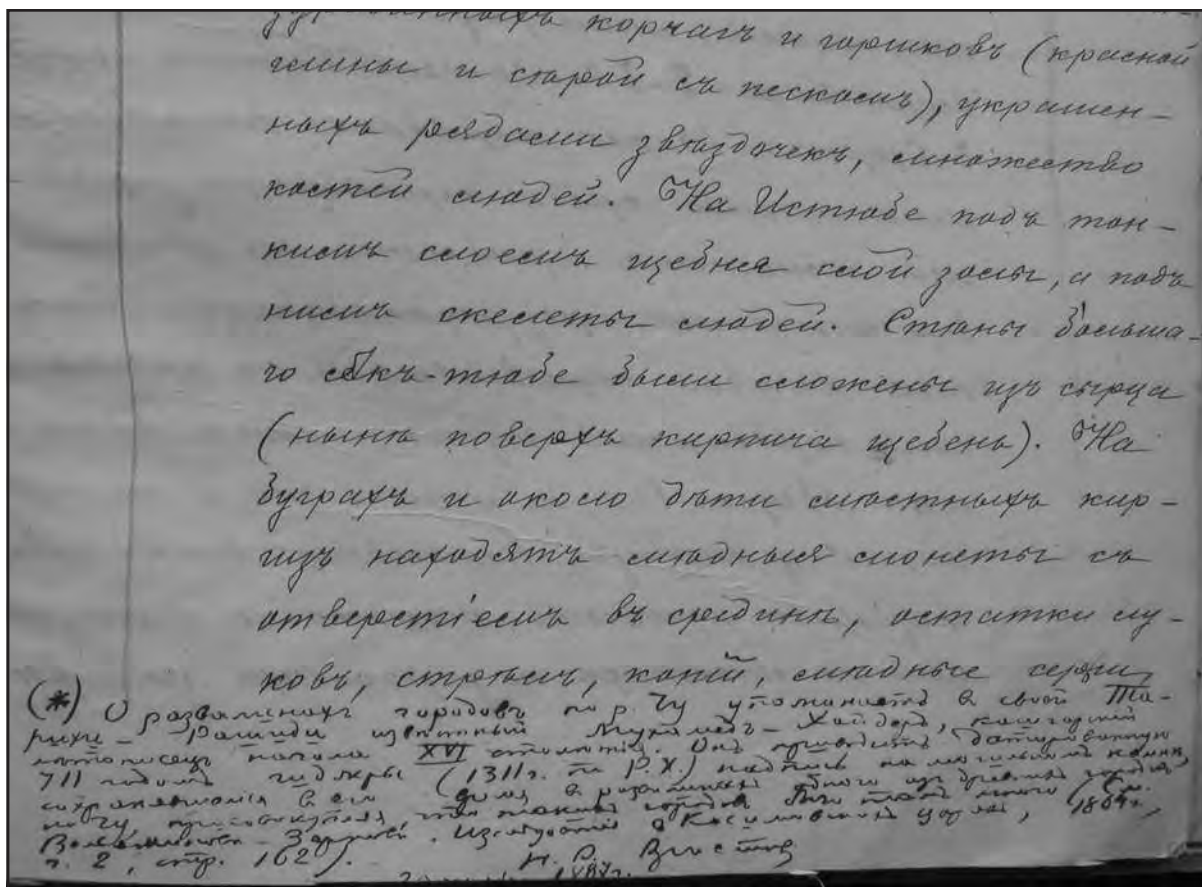 корчагъ и горшковъ (красной
глины и старой съ пескомъ), украшен-
ныхъ рядами звѣздочекъ, множество
костей людей. На Истюбе подъ тон-
кимъ слоемъ щебня слой золы, а подъ
нимъ скелеты людей. Стѣны больша-
го Акъ-тюбе были сложены изъ сырца
(нынѣ поверхъ кирпича щебень). На
буграхъ и около дѣти мѣстныхъ кир-
гизъ находятъ мѣдныя монеты съ
отверстіемъ въ срединѣ, остатки лу-
ковъ, стрѣлъ, копій, мѣдные серги,
(*) О развалинахъ городовъ по р. Чу упоминаетъ в своей Та-
рихи-Рашиди извѣстный Мухамедъ-Хайдеръ, кашгарскій
лѣтописецъ начала XVI столѣтія. Онъ приводитъ датированную
711 годомъ гиджры (1311 г. по Р.Х.) надпись на могильномъ камнѣ,
сохранявшемся в его в развалинахъ одного изъ древнихъ городовъ
по Чу присовокупляя, что такихъ городовъ было тамъ много (См.
Вельяминова-Зернова. Изслѣдованіе о Касимовскихъ царяхъ, 1864 г.,
ч. 2, стр. 162).